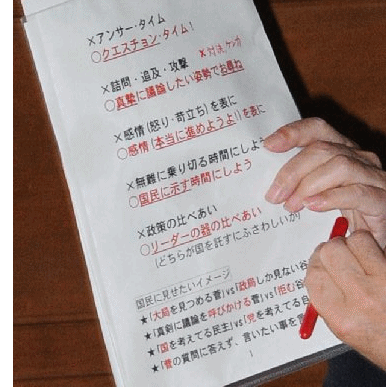 ×アンサー・タイム
○クエスチョン・タイム!
×詰問・追及・攻撃 ×対決、ケンカ
○真摯に議論したい姿勢でお尋ね
×感情(怒り・苛立ち)を表に
○感情(本当に進めようよ!)を表に
×無難に乗り切る時間にしよう
○国民に示す時間にしよう
×政策の比べあい
○リーダーの器の比べあい
(どちらが国を託すにふさわしいか)
国民に見せたいイメージ
★「大局を見つめる菅」vs「政局しか見ない谷
★「真剣に議論を呼びかける菅」vs「拒む谷
★「国を考えてる民主」vs「党を考えてる自
★「菅の質問に答えず、言いたい事を言
1